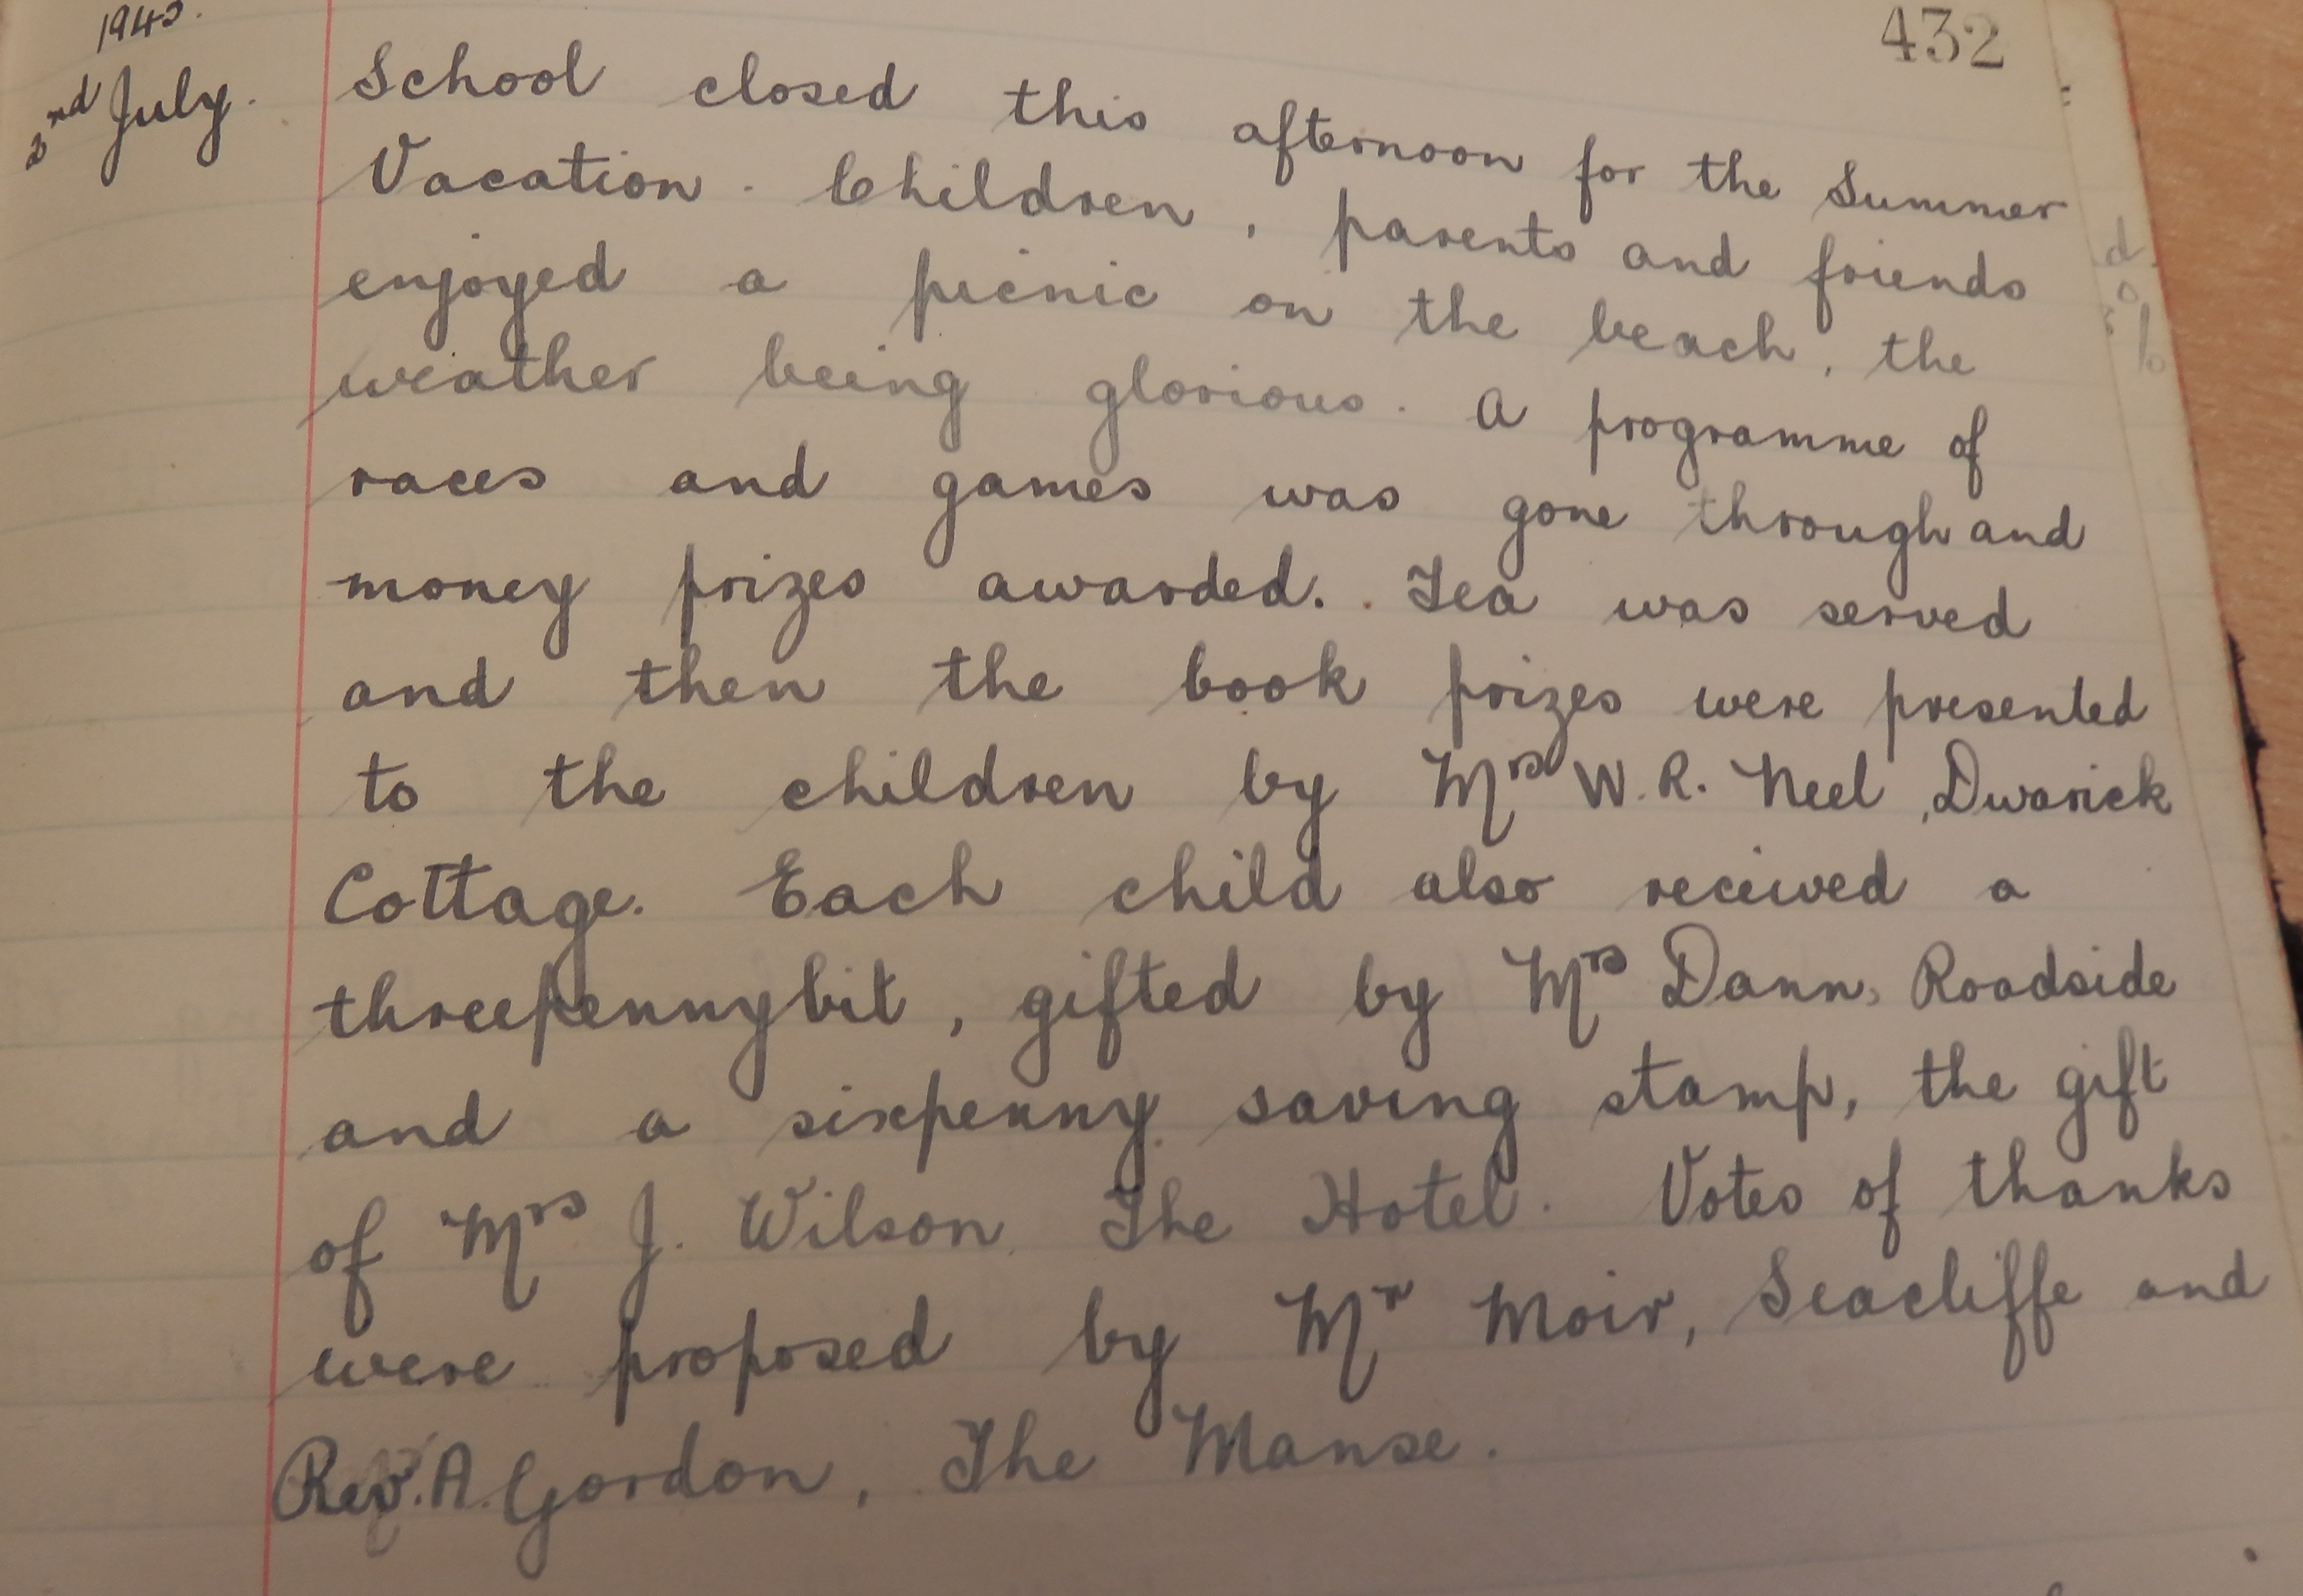 432
1943.
2nd July.
School closed this afternoon for the Summer
Vacation. Children, parents and friends
enjoyed a picnic on the beach, the
weather being glorious. A programme of
races and games was gone through and
money prizes awarded. Tea was served
and then the book prizes were presented
to the children by Mrs W. R. Neel, Dwarick
Cottage. Each child also received a
threepennybit, gifted by Mrs Dann, Roadside
and a sixpenny saving stamp, the gift
of Mrs J. Wilson, The Hotel. Votes of thanks
were proposed by Mr Moir, Seacliffe and
Rev. A. Gordon, The Manse.